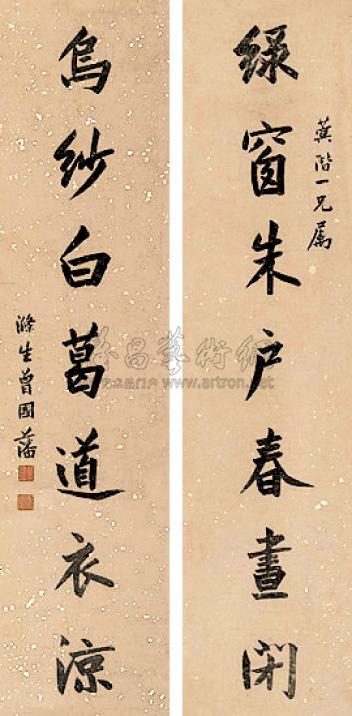 蓂階一兄屬
綠窗朱户春晝閑
烏紗白葛道衣涼
滌生曾國藩
雅昌藝術網
www.artron.net